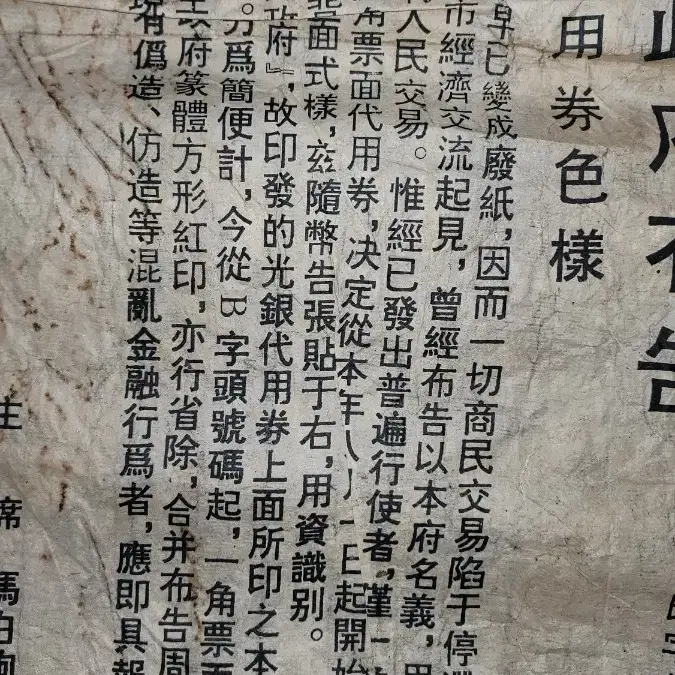 府布告
用券色樣
早已變成廢紙，因而一切商民交易陷于停滯
市經濟交流起見，曾經布告以本府名義，用
人民交易。惟經已發出普遍行使者，僅一
角票面代用券，決定從本年八月一日起開始
面式樣，玆隨幣告張貼于右，用資識别。
政府』，故印發的光銀代用券上面所印之本
分爲簡便計，今從B字頭號碼起，一角票面
政府篆體方形紅印，亦行省除，合并布告周
現有僞造、仿造等混亂金融行爲者，應即具報
主席 馬白